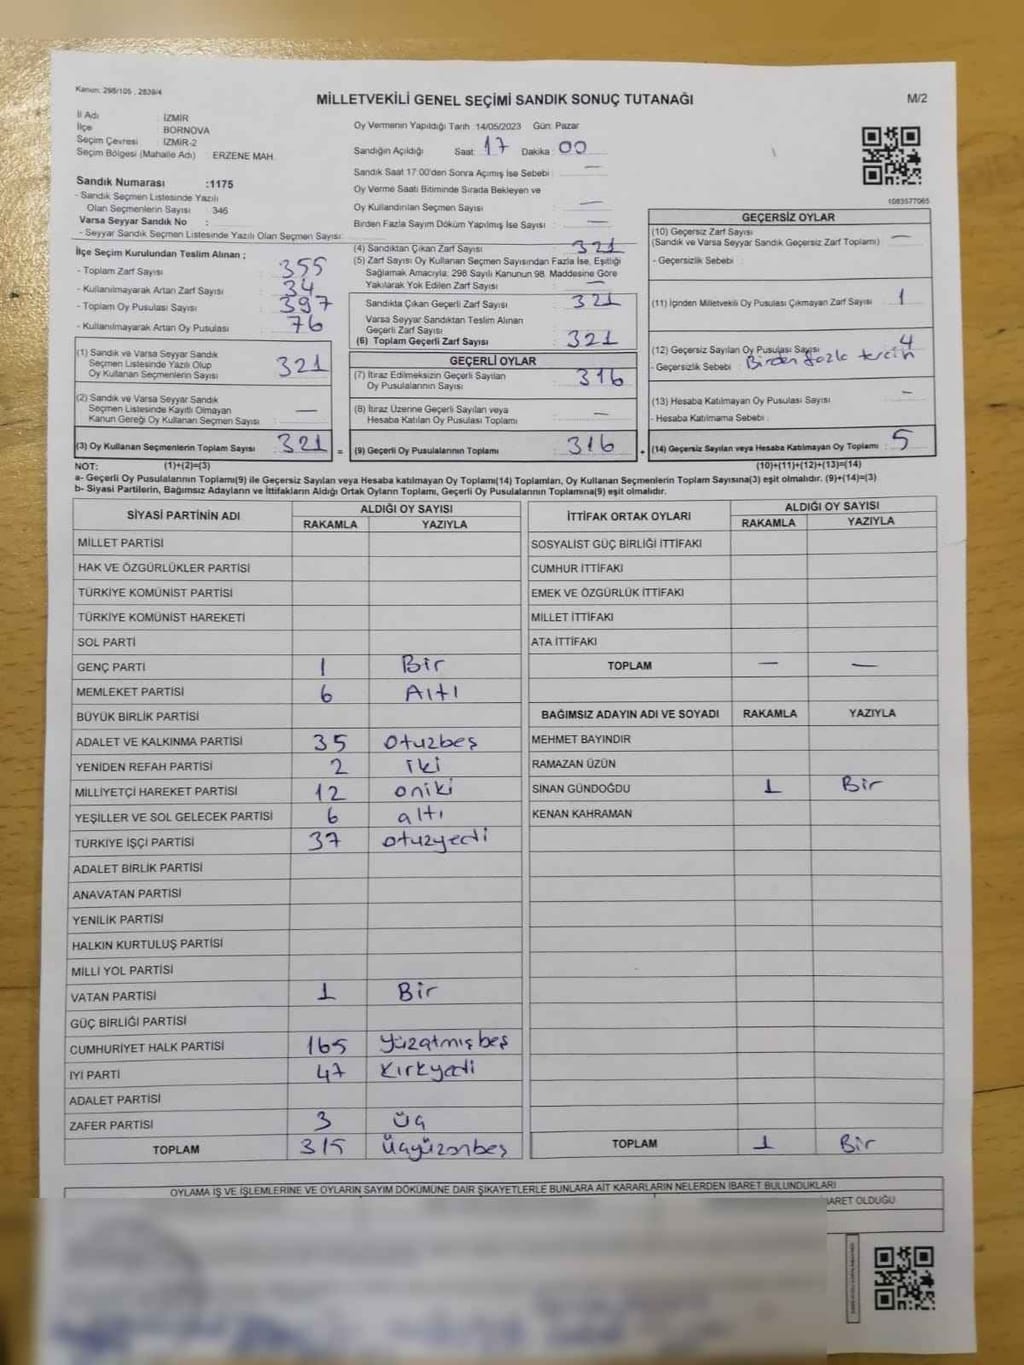 Kanun: 298/105 , 2839/4
MİLLETVEKİLİ GENEL SEÇİMİ SANDIK SONUÇ TUTANAĞI
M/2
İl Adı : İZMİR
İlçe : BORNOVA
Seçim Çevresi : İZMİR-2
Seçim Bölgesi (Mahalle Adı) : ERZENE MAH.
Sandık Numarası :1175
- Sandık Seçmen Listesinde Yazılı
Olan Seçmenlerin Sayısı : 346
Varsa Seyyar Sandık No :
- Seyyar Sandık Seçmen Listesinde Yazılı Olan Seçmen Sayısı:
Oy Vermenin Yapıldığı Tarih :14/05/2023 Gün: Pazar
Sandığın Açıldığı Saat: 17 Dakika : 00
Sandık Saat 17:00'den Sonra Açımış İse Sebebi : —
Oy Verme Saati Bitiminde Sırada Bekleyen ve
Oy Kullandırılan Seçmen Sayısı : —
Birden Fazla Sayım Döküm Yapılmış İse Sayısı : —
1083577065
İlçe Seçim Kurulundan Teslim Alınan ;
- Toplam Zarf Sayısı : 355
- Kullanılmayarak Artan Zarf Sayısı : 34
- Toplam Oy Pusulası Sayısı : 397
- Kullanılmayarak Artan Oy Pusulası : 76
(1) Sandık ve Varsa Seyyar Sandık
Seçmen Listesinde Yazılı Olup
Oy Kullanan Seçmenlerin Sayısı : 321
(2) Sandık ve Varsa Seyyar Sandık
Seçmen Listesinde Kayıtlı Olmayan
Kanun Gereği Oy Kullanan Seçmen Sayısı : —
(3) Oy Kullanan Seçmenlerin Toplam Sayısı : 321 =
(4) Sandıktan Çıkan Zarf Sayısı : 321
(5) Zarf Sayısı Oy Kullanan Seçmen Sayısından Fazla İse, Eşitliği
Sağlamak Amacıyla; 298 Sayılı Kanunun 98. Maddesine Göre
Yakılarak Yok Edilen Zarf Sayısı : —
Sandıkta Çıkan Geçerli Zarf Sayısı : 321
Varsa Seyyar Sandıktan Teslim Alınan
Geçerli Zarf Sayısı :
(6) Toplam Geçerli Zarf Sayısı : 321
GEÇERLİ OYLAR
(7) İtiraz Edilmeksizin Geçerli Sayılan
Oy Pusulalarının Sayısı : 316
(8) İtiraz Üzerine Geçerli Sayılan veya
Hesaba Katılan Oy Pusulası Toplamı : —
(9) Geçerli Oy Pusulalarının Toplamı : 316 +
GEÇERSİZ OYLAR
(10) Geçersiz Zarf Sayısı
(Sandık ve Varsa Seyyar Sandık Geçersiz Zarf Toplamı) : —
- Geçersizlik Sebebi :
(11) İçinden Milletvekili Oy Pusulası Çıkmayan Zarf Sayısı : 1
(12) Geçersiz Sayılan Oy Pusulası Sayısı : 4
- Geçersizlik Sebebi : Birden fazla tercih
(13) Hesaba Katılmayan Oy Pusulası Sayısı : —
- Hesaba Katılmama Sebebi :
(14) Geçersiz Sayılan veya Hesaba Katılmayan Oy Toplamı : 5
NOT: (1)+(2)=(3) (10)+(11)+(12)+(13)=(14)
a- Geçerli Oy Pusulalarının Toplamı(9) ile Geçersiz Sayılan veya Hesaba katılmayan Oy Toplamı(14) Toplamları, Oy Kullanan Seçmenlerin Toplam Sayısına(3) eşit olmalıdır. (9)+(14)=(3)
b- Siyasi Partilerin, Bağımsız Adayların ve İttifakların Aldığı Ortak Oyların Toplamı, Geçerli Oy Pusulalarının Toplamına(9) eşit olmalıdır.
SİYASİ PARTİNİN ADI ALDIĞI OY SAYISI
RAKAMLA YAZIYLA
MİLLET PARTİSİ
HAK VE ÖZGÜRLÜKLER PARTİSİ
TÜRKİYE KOMÜNİST PARTİSİ
TÜRKİYE KOMÜNİST HAREKETİ
SOL PARTİ
GENÇ PARTİ 1 Bir
MEMLEKET PARTİSİ 6 Altı
BÜYÜK BİRLİK PARTİSİ
ADALET VE KALKINMA PARTİSİ 35 otuzbeş
YENİDEN REFAH PARTİSİ 2 iki
MİLLİYETÇİ HAREKET PARTİSİ 12 oniki
YEŞİLLER VE SOL GELECEK PARTİSİ 6 altı
TÜRKİYE İŞÇİ PARTİSİ 37 otuzyedi
ADALET BİRLİK PARTİSİ
ANAVATAN PARTİSİ
YENİLİK PARTİSİ
HALKIN KURTULUŞ PARTİSİ
MİLLİ YOL PARTİSİ
VATAN PARTİSİ 1 Bir
GÜÇ BİRLİĞİ PARTİSİ
CUMHURİYET HALK PARTİSİ 165 yüzatmışbeş
İYİ PARTİ 47 kırkyedi
ADALET PARTİSİ
ZAFER PARTİSİ 3 üç
TOPLAM 315 üçyüzonbeş
İTTİFAK ORTAK OYLARI ALDIĞI OY SAYISI
RAKAMLA YAZIYLA
SOSYALİST GÜÇ BİRLİĞİ İTTİFAKI
CUMHUR İTTİFAKI
EMEK VE ÖZGÜRLÜK İTTİFAKI
MİLLET İTTİFAKI
ATA İTTİFAKI
TOPLAM — —
BAĞIMSIZ ADAYIN ADI VE SOYADI RAKAMLA YAZIYLA
MEHMET BAYINDIR
RAMAZAN ÜZÜN
SİNAN GÜNDOĞDU 1 Bir
KENAN KAHRAMAN
TOPLAM 1 Bir
OYLAMA İŞ VE İŞLEMLERİNE VE OYLARIN SAYIM DÖKÜMÜNE DAİR ŞİKAYETLERLE BUNLARA AİT KARARLARIN NELERDEN İBARET BULUNDUKLARI
BARET OLDUĞU